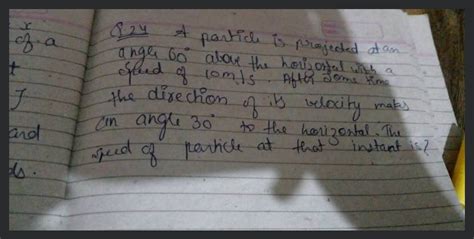 of a
t
J
and
ds.
Q 24 A particle is projected at an
angle 60° above the horizontal with a
speed of 10m/s. After some time
the direction of its velocity makes
an angle 30° to the horizontal. The
speed of particle at that instant is?